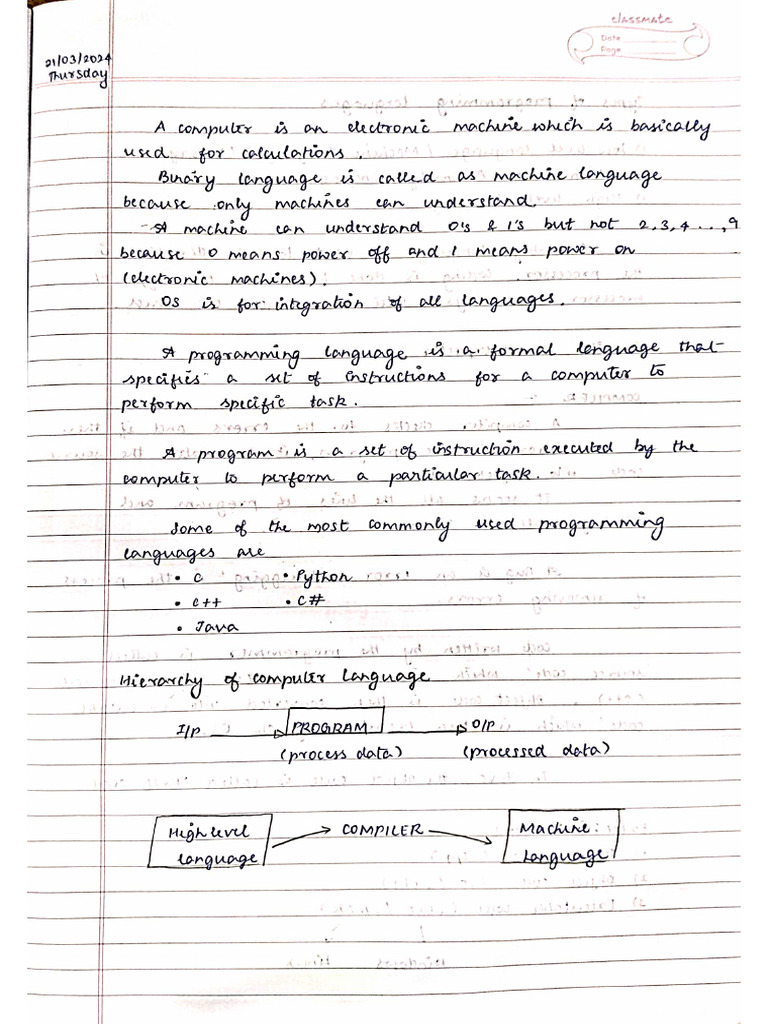 classmate
Date
Page
21/03/2024
Thursday
A computer is an electronic machine which is basically
used for calculations.
Binary language is called as machine language
because only machines can understand.
A machine can understand 0's & 1's but not 2,3,4...,9
because 0 means power off and 1 means power on
(electronic machines).
OS is for integration of all languages.
A programming language is a formal language that
specifies a set of instructions for a computer to
perform specific task.
A program is a set of instruction executed by the
computer to perform a particular task.
Some of the most commonly used programming
languages are
• C • Python
• C++ • C#
• Java
Hierarchy of computer language
I/P PROGRAM O/P
(process data) (processed data)
High level COMPILER Machine
language language